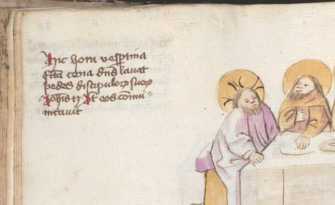 Hic hora vespertina
facta cena dns lavat
pedes discipulorum suorum
Johis 13 Et eos commu
nicavit